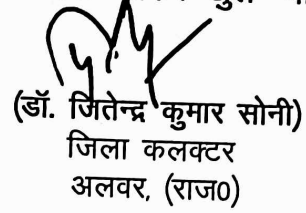 (डॉ. जितेन्द्र कुमार सोनी)
जिला कलक्टर
अलवर, (राज0)